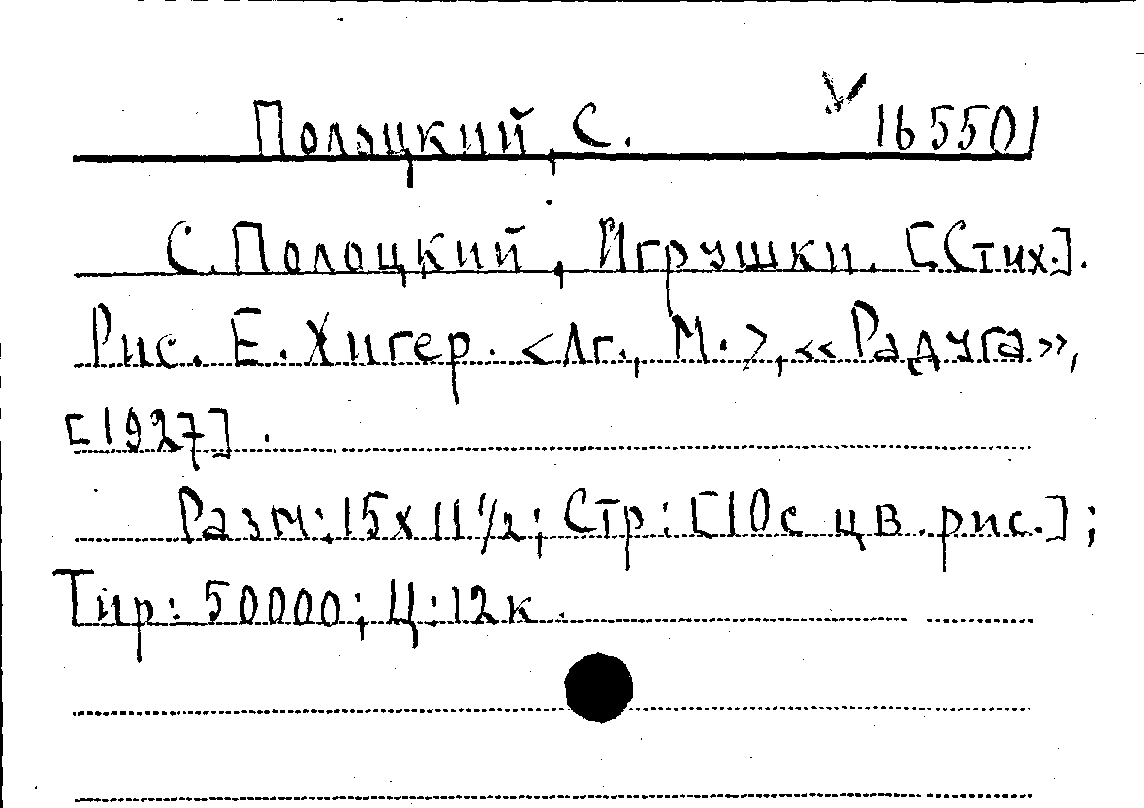 Полоцкий, С. V 165501
С. Полоцкий, Игрушки. [Стих.].
Рис. Е. Хигер. <Лг., М.>, «Радуга»,
[1927].
Разм: 15х11 1/2; Стр: [10с цв. рис.];
Тир: 50000; Ц: 12к.